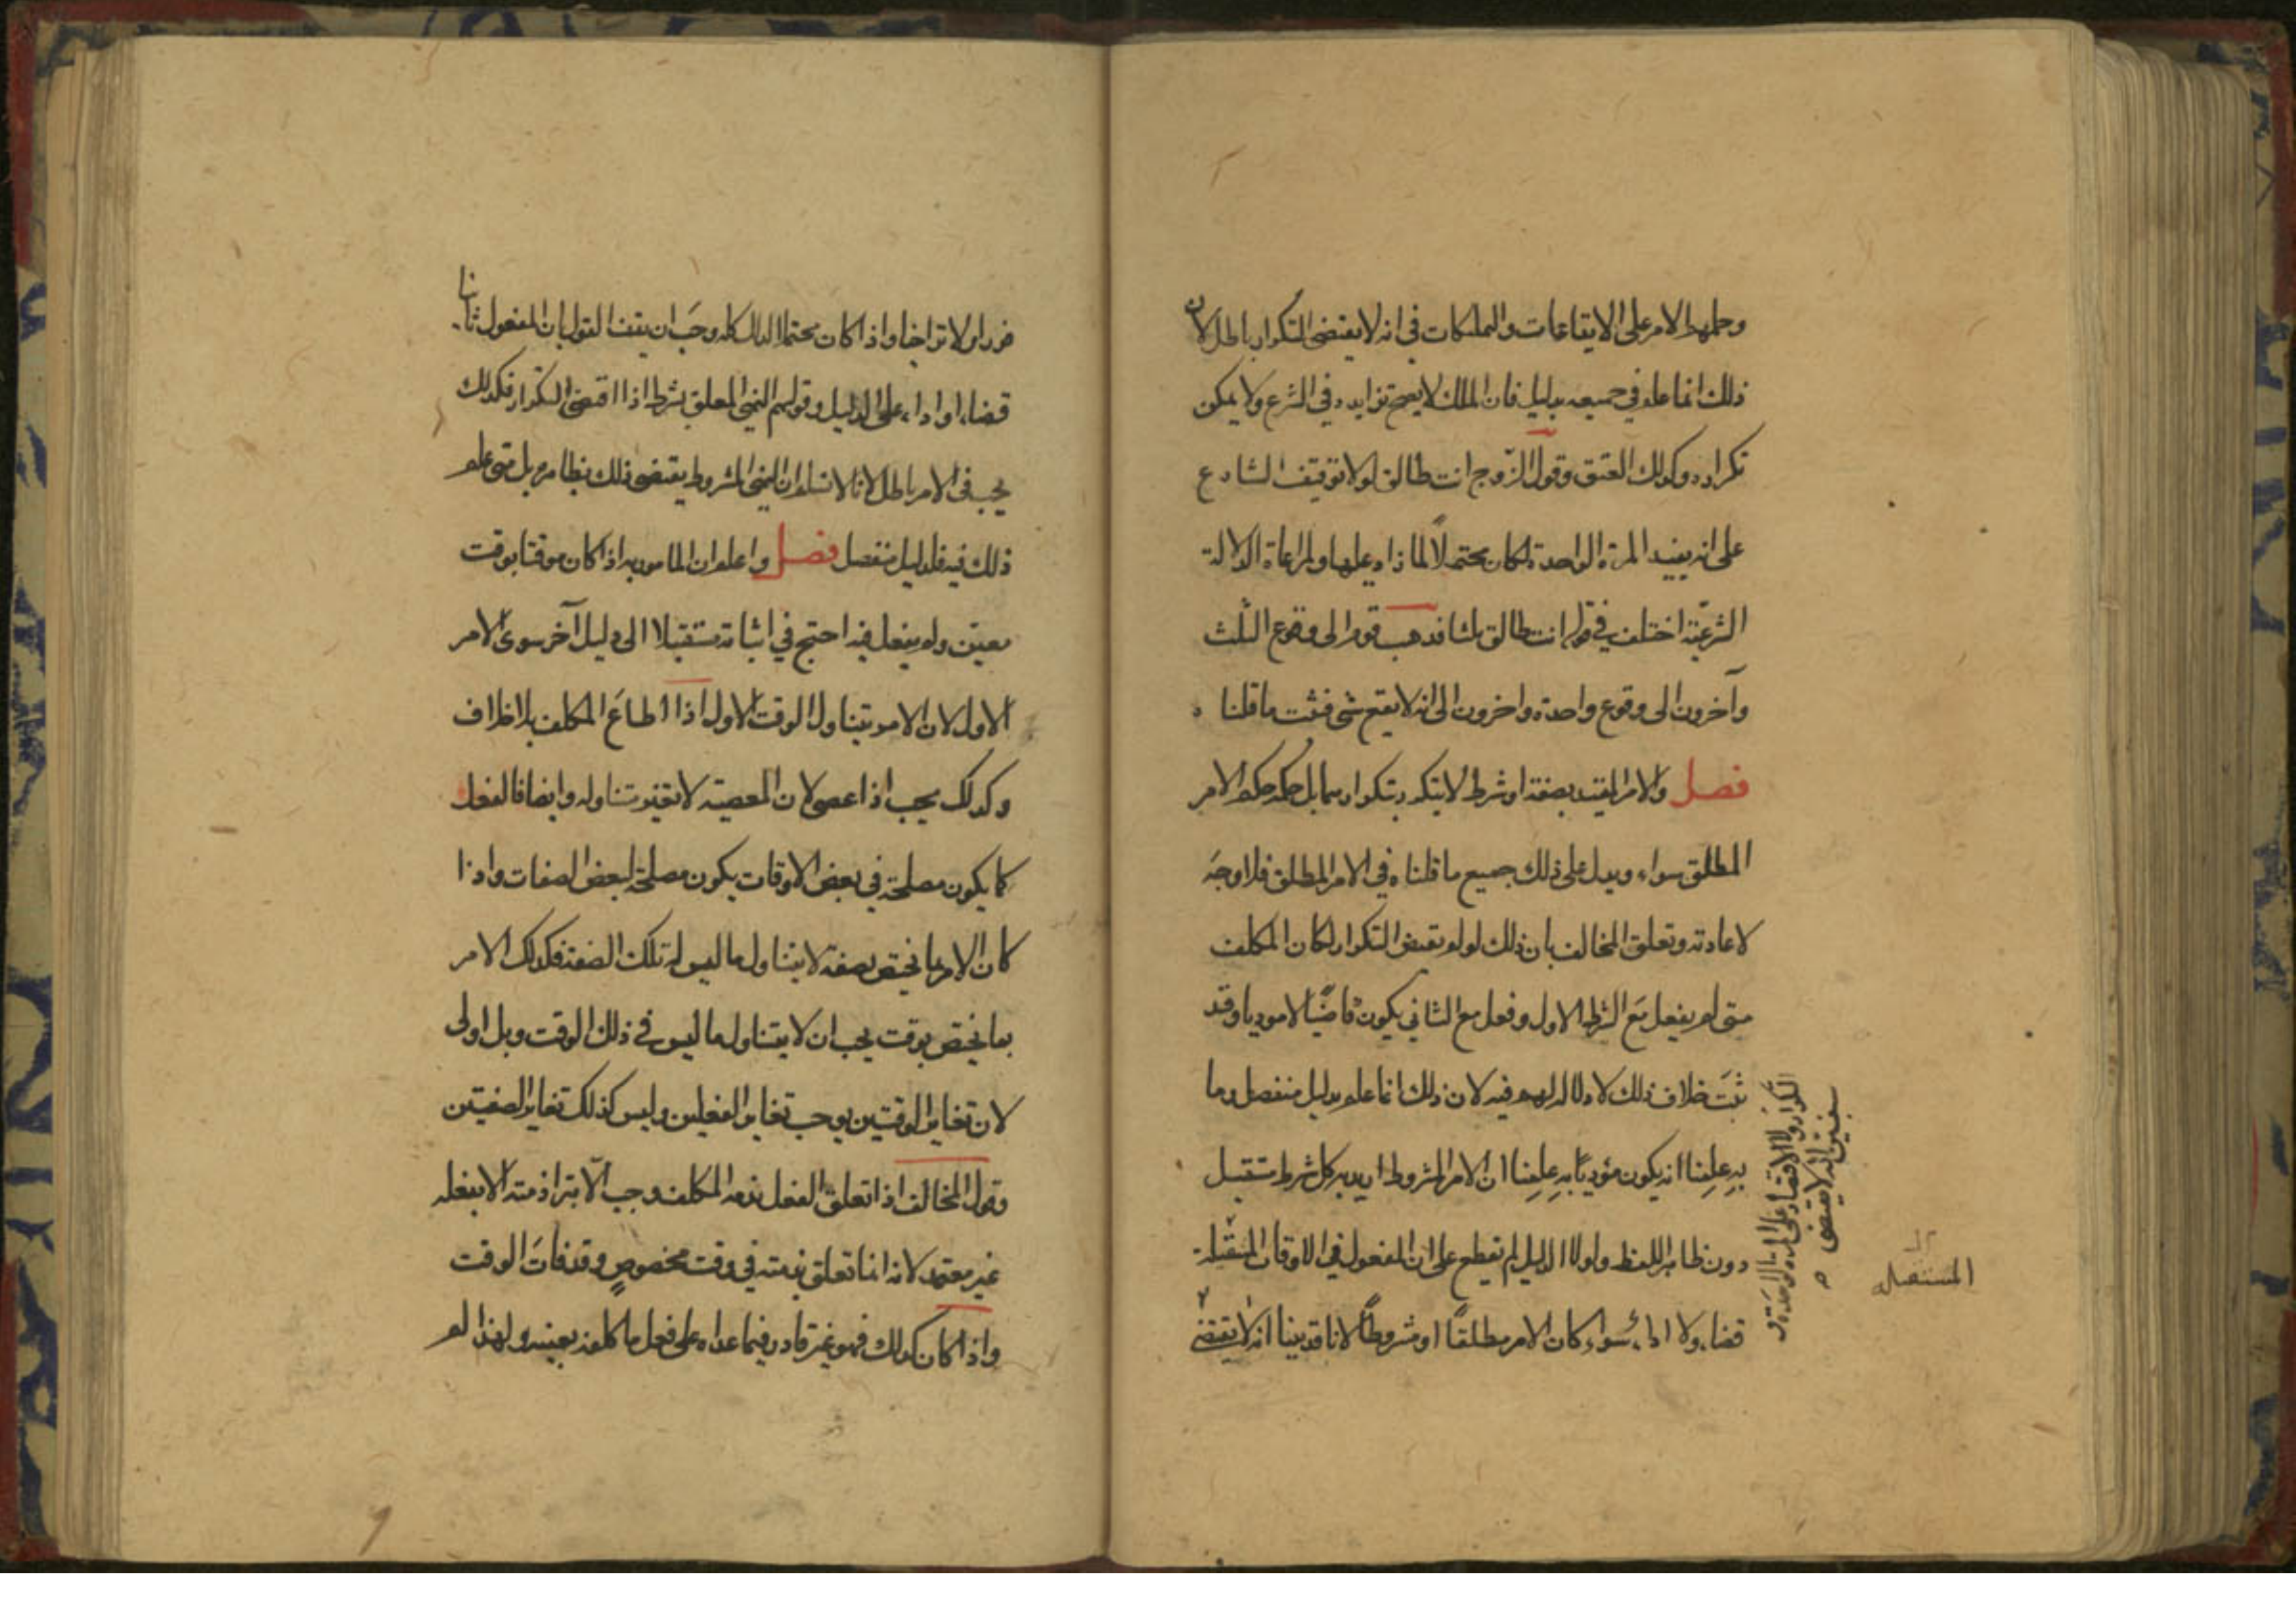 وحملهم الامر على الايقاعات والتمليكات في انه لا يقتضى التكرار باطل لان
ذلك انما علم في جميعه بدليل فان الملك لا يصح تزايده في الشرع ولا يمكن
تكراره وكذلك العتق وقول الزوج انت طالق لولا توقيف الشارع
على انه يفيد المرة الواحدة لكان محتملاً لما زاد عليها ولمراعاة الدلالة
الشرعيّة اختلف في قوله انت طالق ثلثا فذهب قوم الى وقوع الثلث
وآخرون الى وقوع واحدة واخرون الى انه لا يقع شي فثبت ما قلناه
فصل والامر المقيد بصفة او شرط لا يتكرر بتكرارهما بل حكمه حكم الامر
المطلق سواء ويدل على ذلك جميع ما قلناه في الامر المطلق فلا وجه
لاعادته وتعلق المخالف بان ذلك لو لم يقتض التكرار لكان المكلف
متى لم يفعل مع الشرط الاول وفعل مع الثاني يكون قاضيًا لا موديا وقد
ثبت خلاف ذلك لا دلالة لهم فيه لان ذلك انما علم بدليل منفصل وما
به علمنا انه يكون مؤديًا به علمنا ان الامر المشروط اريد به كل شرط مستقبل
دون ظاهر اللفظ ولولا الدليل لم نقطع على ان المفعول في الاوقات المستقبلة
قضاء ولا اداء سواء كان الامر مطلقًا او مشروطًا لانا قد بينا انه لا يقتضى
التكرار ولا الاقتصار على المرة الواحدة و
سنبيّن انه لا يقتضى
المستقبله
فورا ولا تراخيا واذا كان محتملا لذلك كله وجب ان يقف القول بان المفعول ثانيا
قضاء او اداء على الدليل وقولهم النهي المعلق بشرط اذا اقتضى التكرار فكذلك
يجب في الامر باطل لانا لا نسلم ان النهي المشروط يقتضى ذلك بظاهره بل متى علم
ذلك فيه فلدليل منفصل فصل واعلم ان المامور به اذا كان موقتا بوقت
معيّن ولم يفعل فيه احتج في اثباته مستقبلا الى دليل آخر سوى الامر
الاول لان الامر يتناول الوقت الاول اذا اطاع المكلف بلا خلاف
وكذلك يجب اذا عصى لان المعصية لا تغيّر متناوله وايضا فالفعل
كما يكون مصلحة في بعض الاوقات يكون مصلحة لبعض الصفات واذا
كان الامر بما يختص بصفة لا يتناول ما ليس له تلك الصفة فكذلك الامر
بما يختص بوقت يجب ان لا يتناول ما ليس في ذلك الوقت وبل اولى
لان تغاير الوقتين يوجب تغاير الفعلين وليس كذلك تغاير الصفيتين
وقول المخالف اذا تعلق الفعل بذمه المكلف وجب الّا تبرا ذمته الا بفعله
غير معتمد لانه انما تعلق بذمته في وقت مخصوص وقد فات الوقت
واذا كان كذلك فهو غير قادر فيما عداه على فعل ما كلفه بعينه ولهذا لم